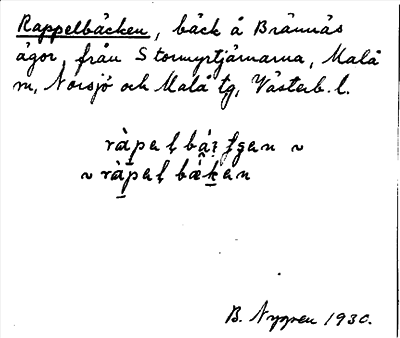 Rappelbäcken, bäck å Brännäs
ägor, från Stormyrtjärnarna, Malå
m, Norsjö och Malå tg, Västerb. l.
~ ràpel
B. Nygren 1930.